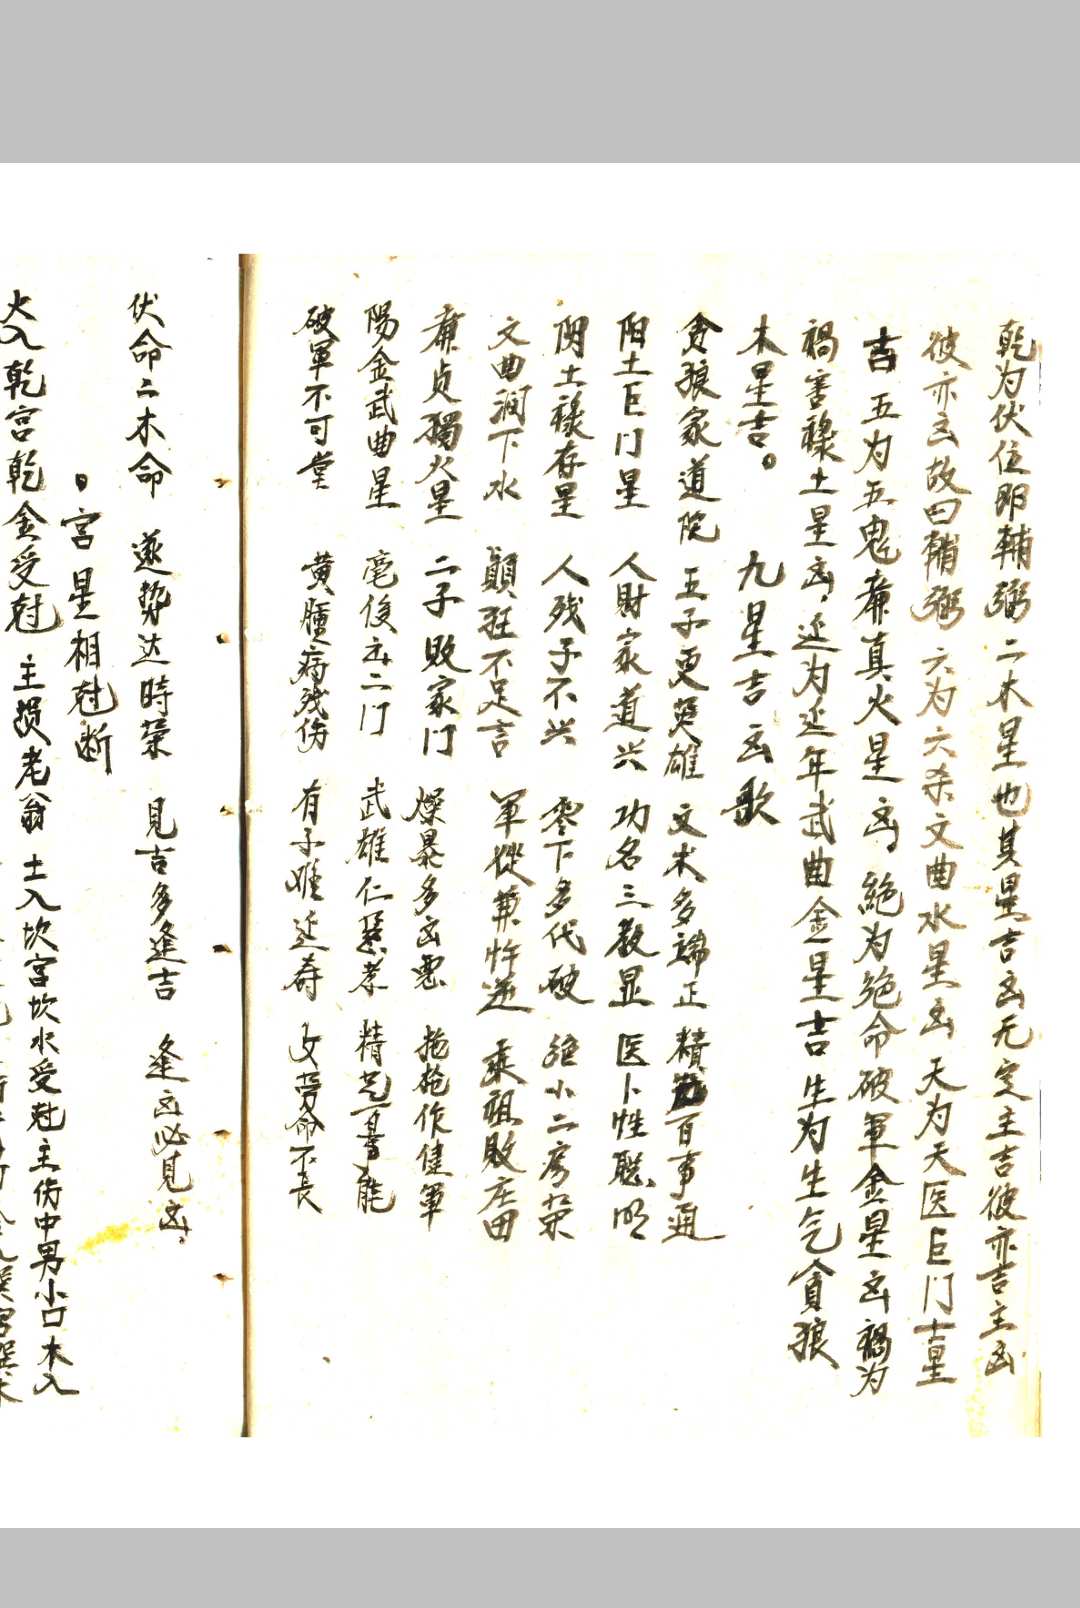 乾为伏位即輔弼二木星也其星吉凶无定主吉彼亦吉主凶
彼亦凶故曰輔弼六为六杀文曲水星凶天为天医巨门土星
吉五为五鬼廉真火星凶絶为绝命破軍金星凶禍为
禍害禄土星凶延为延年武曲金星吉生为生气貪狼
木星吉。
九星吉凶歌
貪狼家道院 五子更英雄 文术多端正 精 百事通
阳土巨门星 人財家道兴 功名三教显 医卜性聪明
阴土禄存星 人残子不兴 零下多代破 绝小二房荣
文曲润下水 顛狂不足言 軍從兼忤逆 乘祖敗庄田
廉貞獨火星 二子敗家门 燥暴多凶悪 拖枪作健軍
陽金武曲星 毫俊 二门 武雄仁慈孝 精 能
破軍不可当 黄腫病残伤 有子难延寿 女 命不長
伏命二木命 遂势达時荣 見吉多逢吉 逢凶必見凶。
。宮星相尅断
火入乾宮乾金受尅 主损老翁 土入坎宮坎水受尅主伤中男小口木入